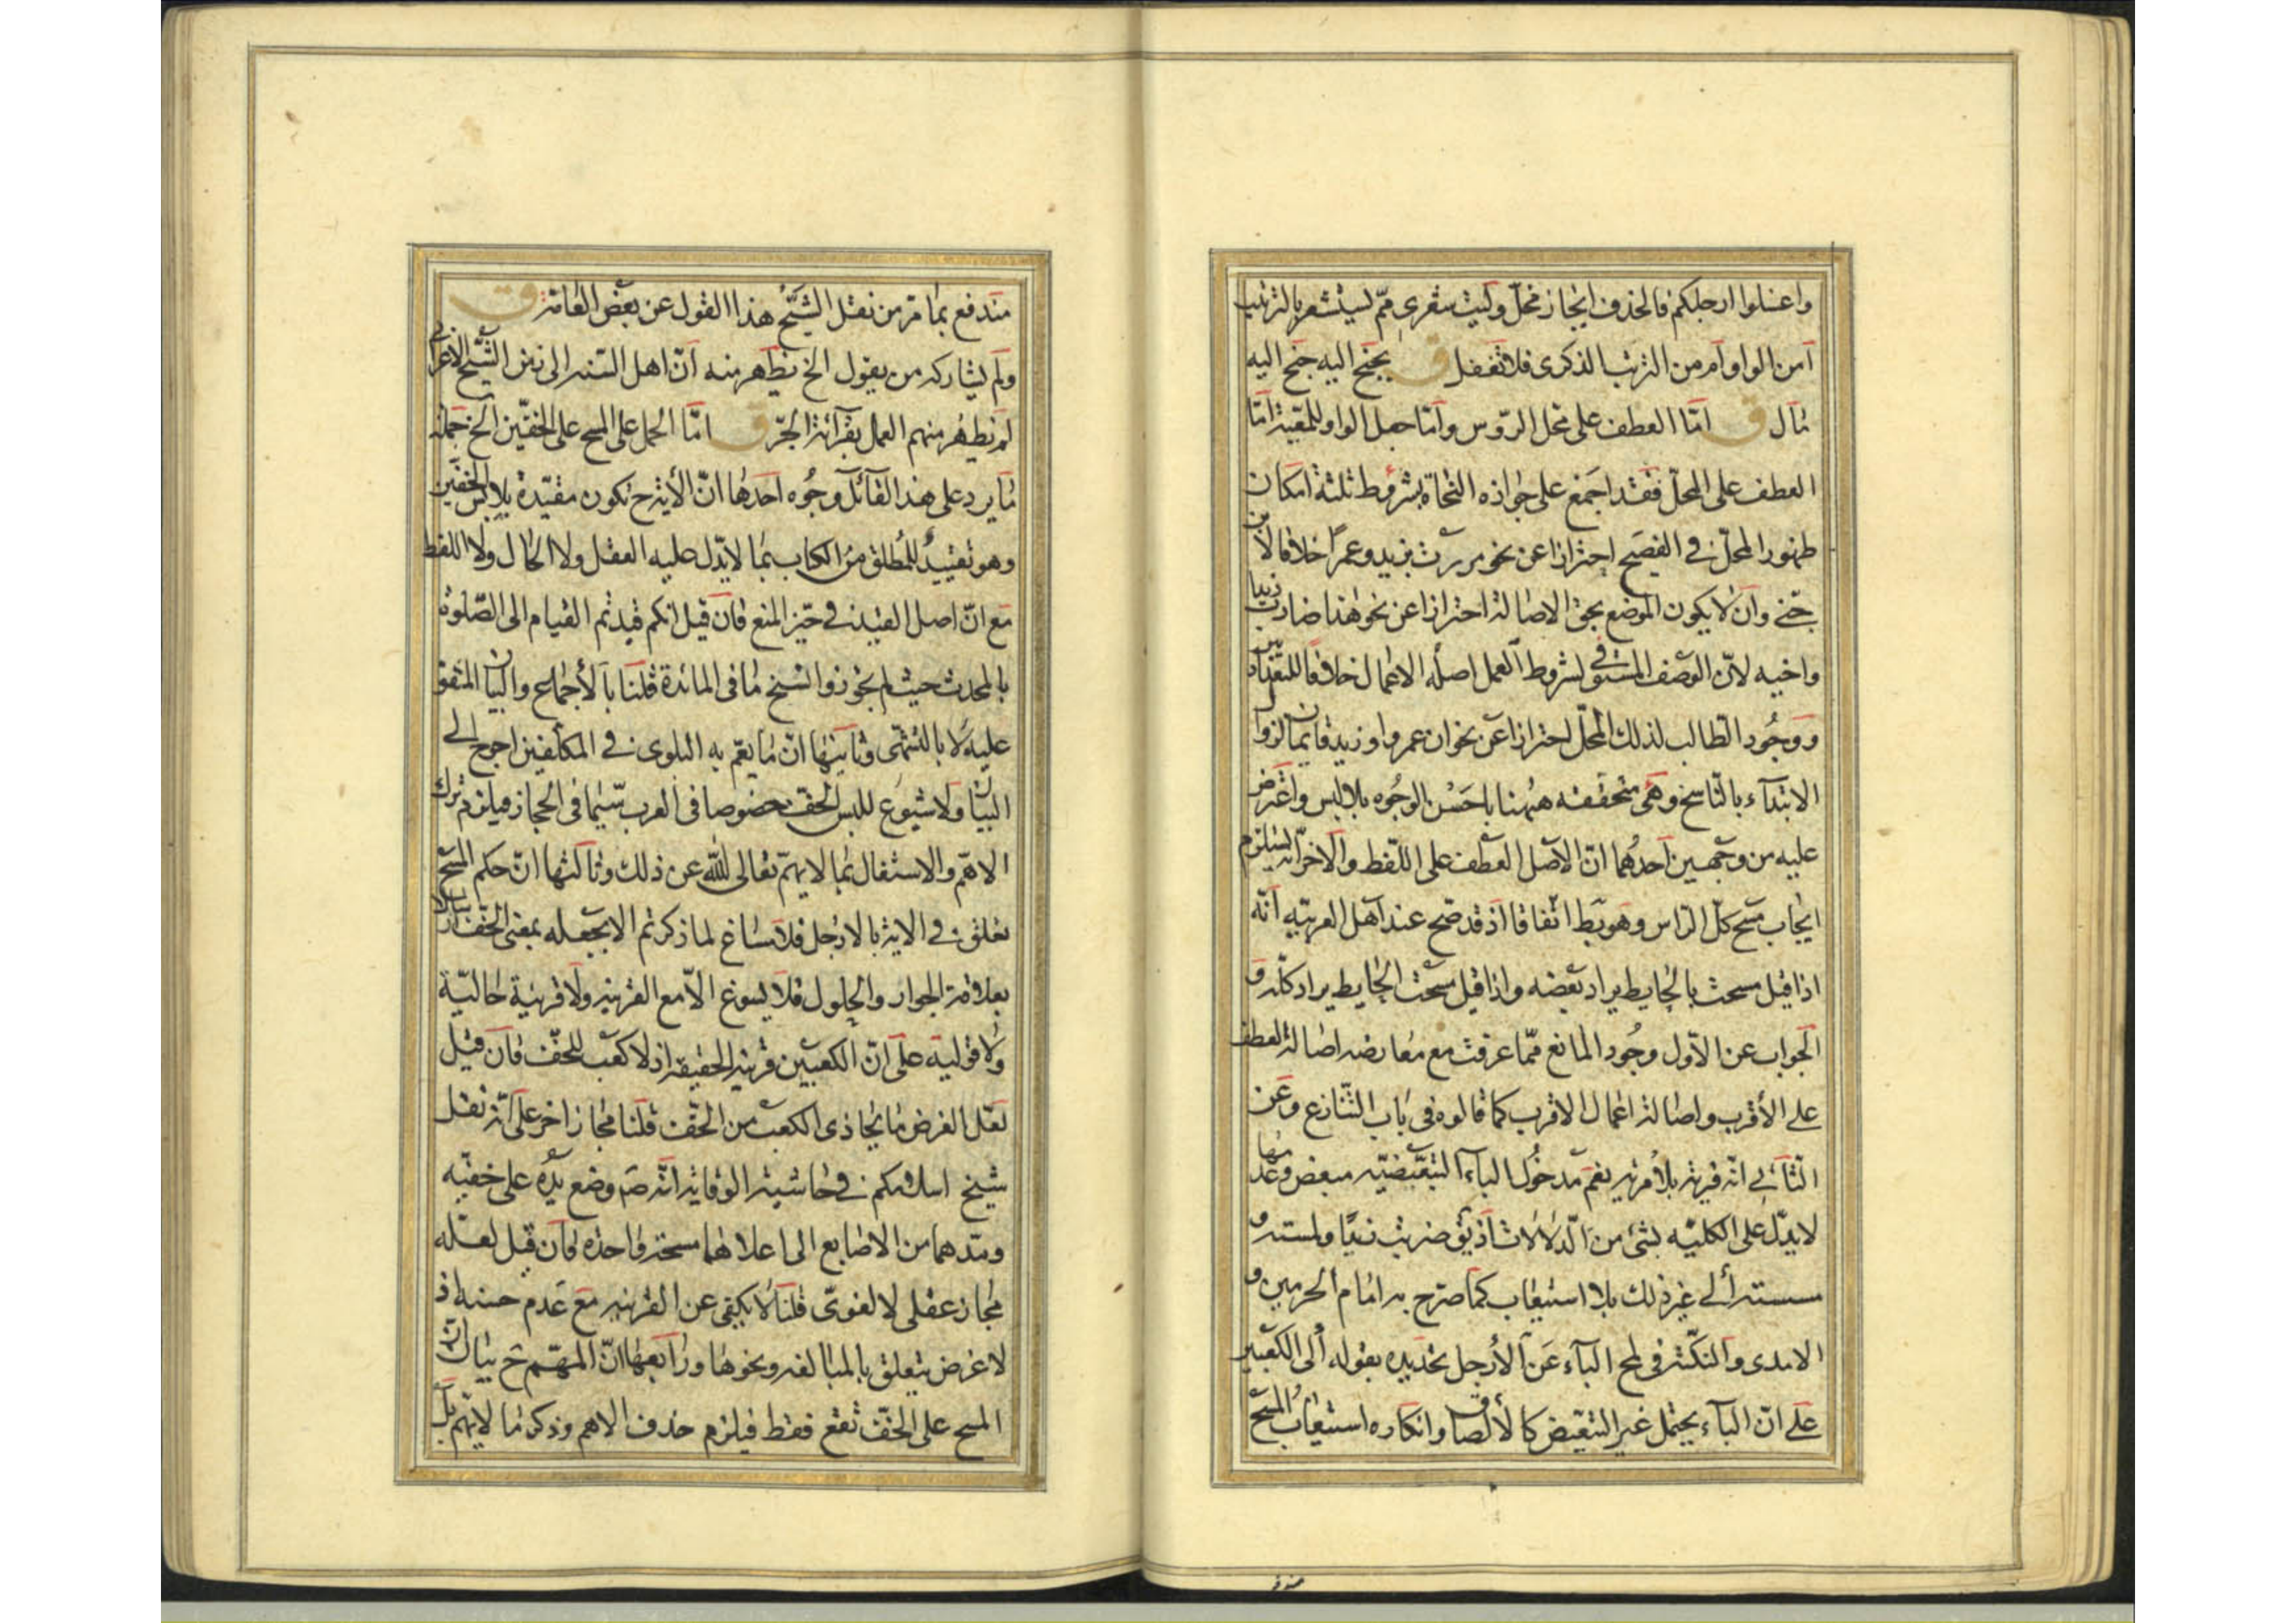 واغسلوا ارجلكم فالحذف ايجاز مخلّ وليت شعرى ممّ ليستشعر بالترتيب
أمن الواو أم من الترتيب الذكرى فلا تغفل ق يجنح اليه جنح اليه
مال ق امّا العطف على محل الرّوس وامّا جعل الواو للمعيّة امّا
العطف على المحلّ فقد اجمع على جوازه النحاة بشروط ثلثة امكان
ظهور المحلّ فى الفصيح احترازا عن نحو مررت بزيد وعمراً خلافا لابن
جنّى وان لا يكون الموضع بحق الاصالة احترازا عن نحو هذا ضارب زيدا
واخيه لانّ الوصف المستوفى لشروط العمل اصله الاعمال خلافا للبغداديين
ووجُود الطالب لذلك المحلّ احترازا عن نحو ان عمروا وزيد قايمان لزوال
الابتدآء بالنّاسخ وهى متحققة ههنا باحسن الوجُوه بلا لبس واعترض
عليه من وجهين احدهُما انّ الاصل العطف على اللّفظ والاخر انّه يستلزم
ايجاب مسح كلّ الرّاس وهو بط اتفاقا اذ قد صح عند اهل العربيّه انّه
اذا قيل مسحت بالحايط يراد بعضه واذا قيل مسحت الحايط يراد كلّه و
الجواب عن الاوّل وجُود المانع ممّا عرفت مع معارضه اصالة العطف
على الأقرب واصالة اعمال الاقرب كما قالوه فى باب التّنازع وعن
الثانى انّه فرية بلا مرية نعم مدخُول البآء التبعيضيّه مبعض وعدمها
لا يدّل على الكليّه بشئ من الدّلالات اذ يق ضربت زيدًا ولمسته و
مسسته ألى غير ذلك بلا استيعاب كما صرّح به امام الحرمين و
الامدى والنكتة فى لمح البآء عن الأرجل تحديده بقوله ألى الكعبين
على انّ البآء يحتمل غير التبعيض كالألصاق وانكاره استيعاب المسح
مندفع بما مر من نقل الشيخ هذا القول عن بعض العامّة ق
ولم يشاركه من يقول الخ يظهر منه انّ اهل السّنه الى زمن الشّيخ الاعرابى
لم يظهر منهم العمل بقرآءة الجرّ ق امّا الحمل على المسح على الخفّين الخ جملة
ما يرد على هذا القائل وجُوه احدها انّ الأية ح تكون مقيّدة بلابس الخفّين
وهو تقييدٌ للمُطلق من الكتاب بما لا يدّل عليه العقل ولا الحال ولا اللفظ
مع انّ اصل القيد فى حيّز المنع فان قيل انكم قيدتم القيام الى الصّلوة
بالمحدث حيث لم تجوزوا نسخ ما فى المائدة قلنا بالأجماع والبيان المتفق
عليه لا بالتشهّى وثانيها انّ ما يعمّ به البلوى فى المكلّفين احوج الى
البيان ولا شيوع للبس الخف خصُوصا فى العرب سّيما فى الحجاز فيلزم ترك
الاهمّ والاشتغال بما لا يهمّ تعالى الله عن ذلك وثالثها انّ حكم المسح
تعلق فى الاية بالارجل فلا مساغ لما ذكرتم الا بجعله بمعنى الخف ارسالا
بعلاقة الجوار والحلول فلا يسوغ الاّ مع القرينه ولا قرينة حاليّة
ولا قوليّة على انّ الكعبين قرينه الحقيقة اذ لا كعب للخفّ فان قيل
لعّل الغرض ما يحاذى الكعب من الخفّ قلنا مجاز اخر على انّه نقل
شيخ اسلامكم فى حاشية الوقاية انّه صَ وضع يده على خفيّه
ومدهما من الاصابع الى اعلاهما مسحة واحدة فان قيل لعلّه
مجاز عقلى لا لغوىّ قلنا لا يكفى عن القرينه مع عدم حسنه اذ
لا غرض يتعلق بالمبالغه ونحوها ورابعها انّ المهّم ح بيان انّ
المسح على الخفّ تقع فقط فيلزم حذف الاهم وذكر ما لا يهّم بل